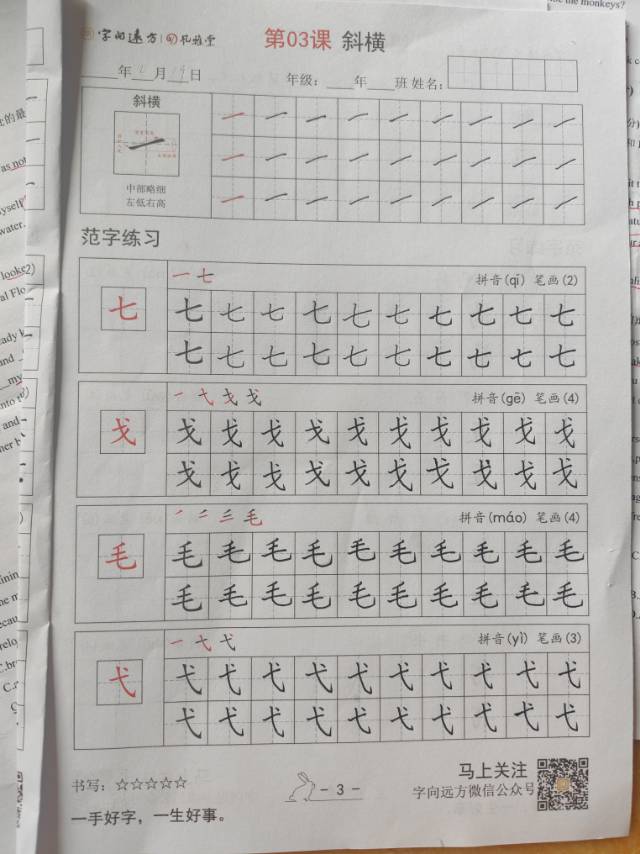 字向远方
第03课 斜横
年 月 日
年级: 年 班 姓名:
斜横
中部略细
左低右高
范字练习
一 七
拼音(qī) 笔画(2)
七
七 七 七 七 七 七 七 七 七 七
七 七 七 七 七 七 七 七 七 七
拼音(gē) 笔画(4)
戈
戈 戈 戈 戈 戈 戈 戈 戈 戈 戈
戈 戈 戈 戈 戈 戈 戈 戈 戈 戈
拼音(máo) 笔画(4)
毛
毛 毛 毛 毛 毛 毛 毛 毛 毛 毛
毛 毛 毛 毛 毛 毛 毛 毛 毛 毛
拼音(yì) 笔画(3)
弋
弋 弋 弋 弋 弋 弋 弋 弋 弋 弋
弋 弋 弋 弋 弋 弋 弋 弋 弋 弋
书写: ☆☆☆☆☆
- 3 -
马上关注
字向远方微信公众号
一手好字，一生好事。